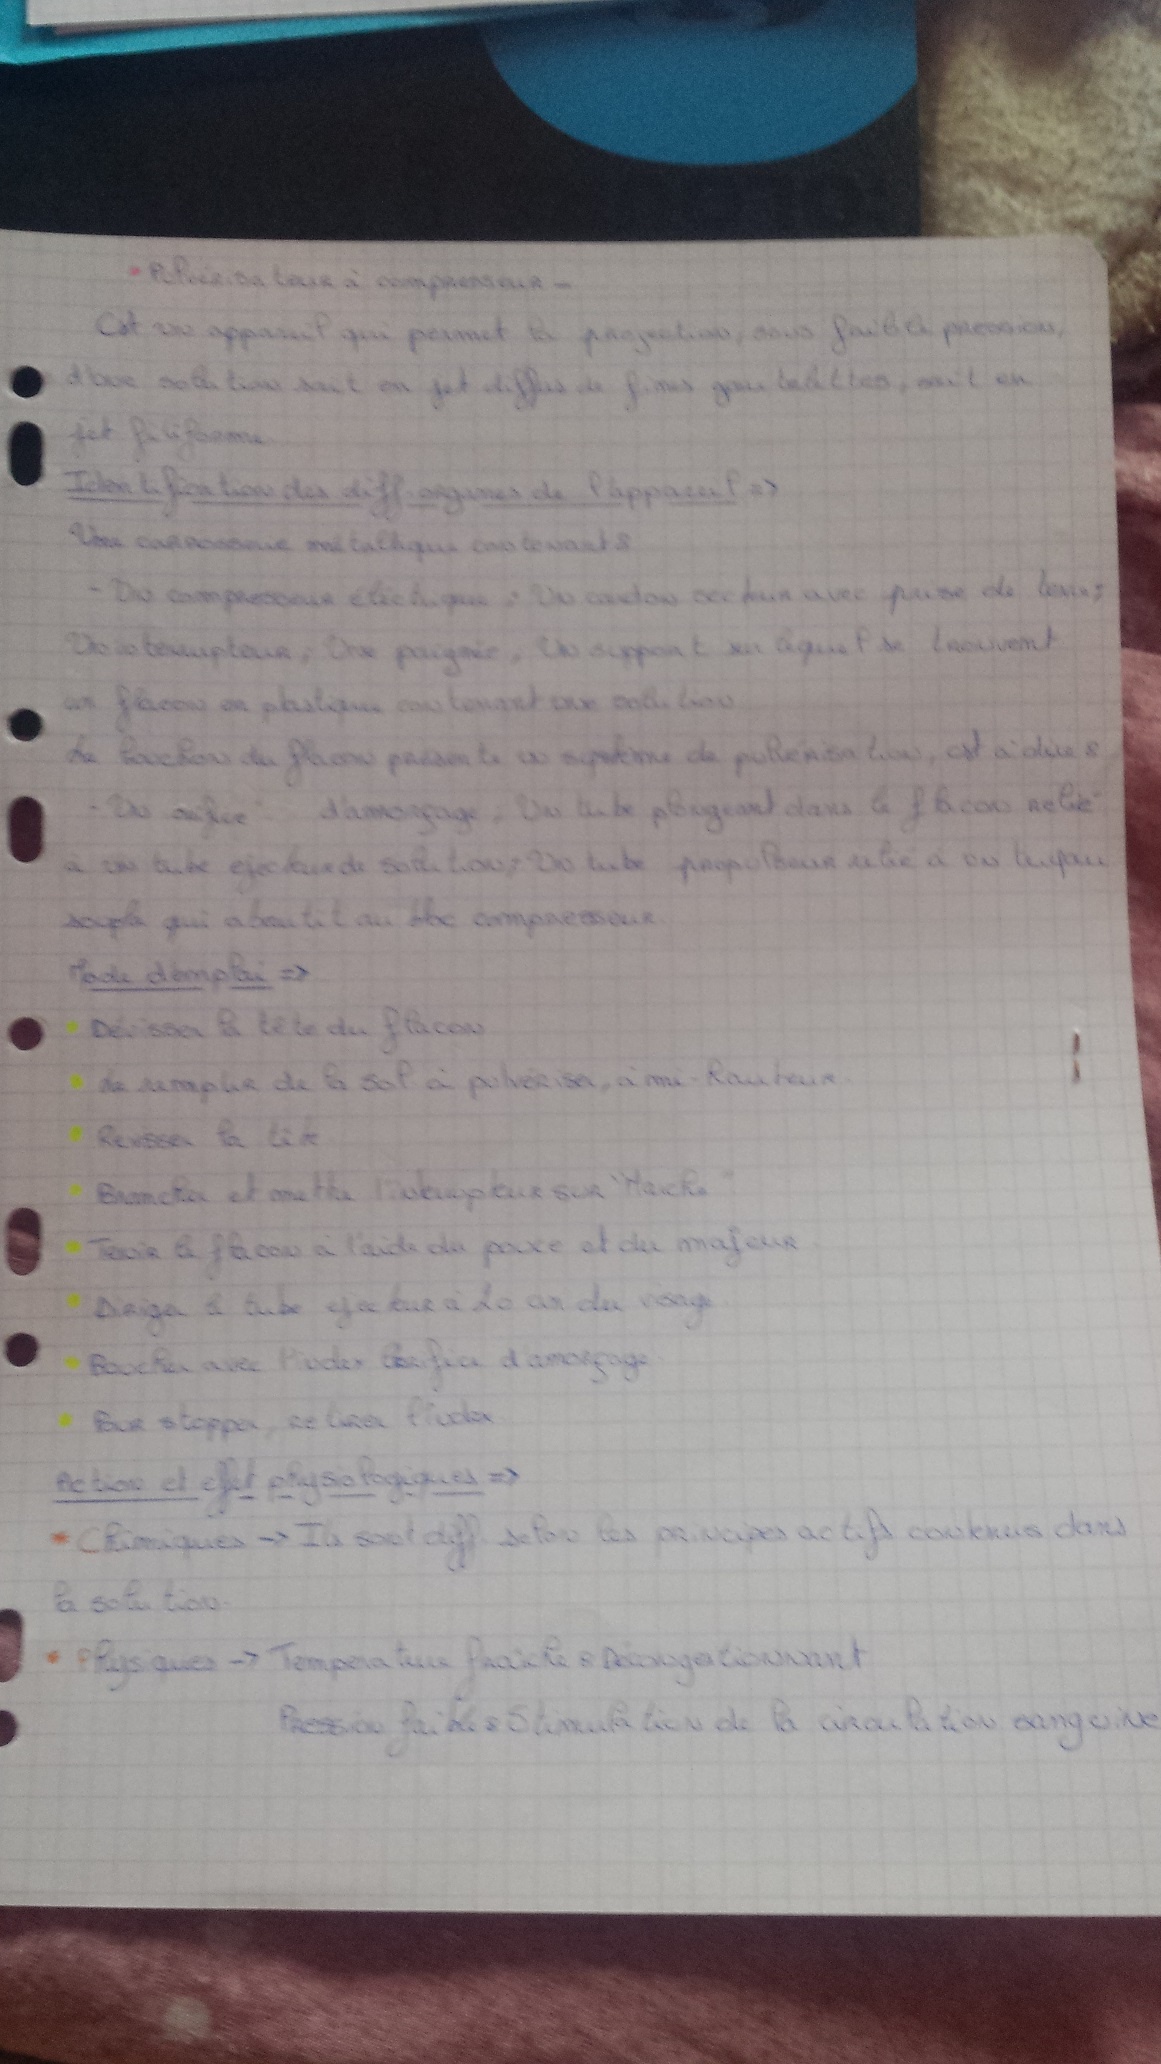 • Pulvérisateur à compresseur -
C'est un appareil qui permet la projection, sous faible pression,
d'une solution soit en jet diffus de fines gouttelettes, soit en
jet filiforme
Identification des diff. organes de l'appareil =>
Une carrosserie métallique contenant :
- Un compresseur éléctrique ; Un cordon secteur avec prise de terre ;
Un interrupteur ; Une poignée ; Un support sur lequel se trouvent
un flacon en plastique contenant une solution
Le bouchon du flacon présente un système de pulvérisation, c'est à dire :
- Un orifice d'amorçage ; Un tube plongeant dans le flacon relié
à un tube ejecteur de solution ; Un tube propulseur relié à un tuyau
souple qui aboutit au bloc compresseur.
Mode d'emploi =>
• Dévisser la tête du flacon
• Le remplir de la sol à pulvériser, à mi-hauteur.
• Revisser la tête
• Brancher et mettre l'interrupteur sur "Marche"
• Tenir le flacon à l'aide du pouce et du majeur
• Diriger le tube ejecteur à 20 cm du visage
• Boucher avec l'index l'orifice d'amorçage.
• Pour stopper, retirer l'index
Action et effet physiologiques =>
* Chimiques -> Ils sont diff. selon les principes actifs contenus dans
la solution.
* Physiques -> Température fraîche : Décongestionnant
Pression faible : Stimulation de la circulation sanguine